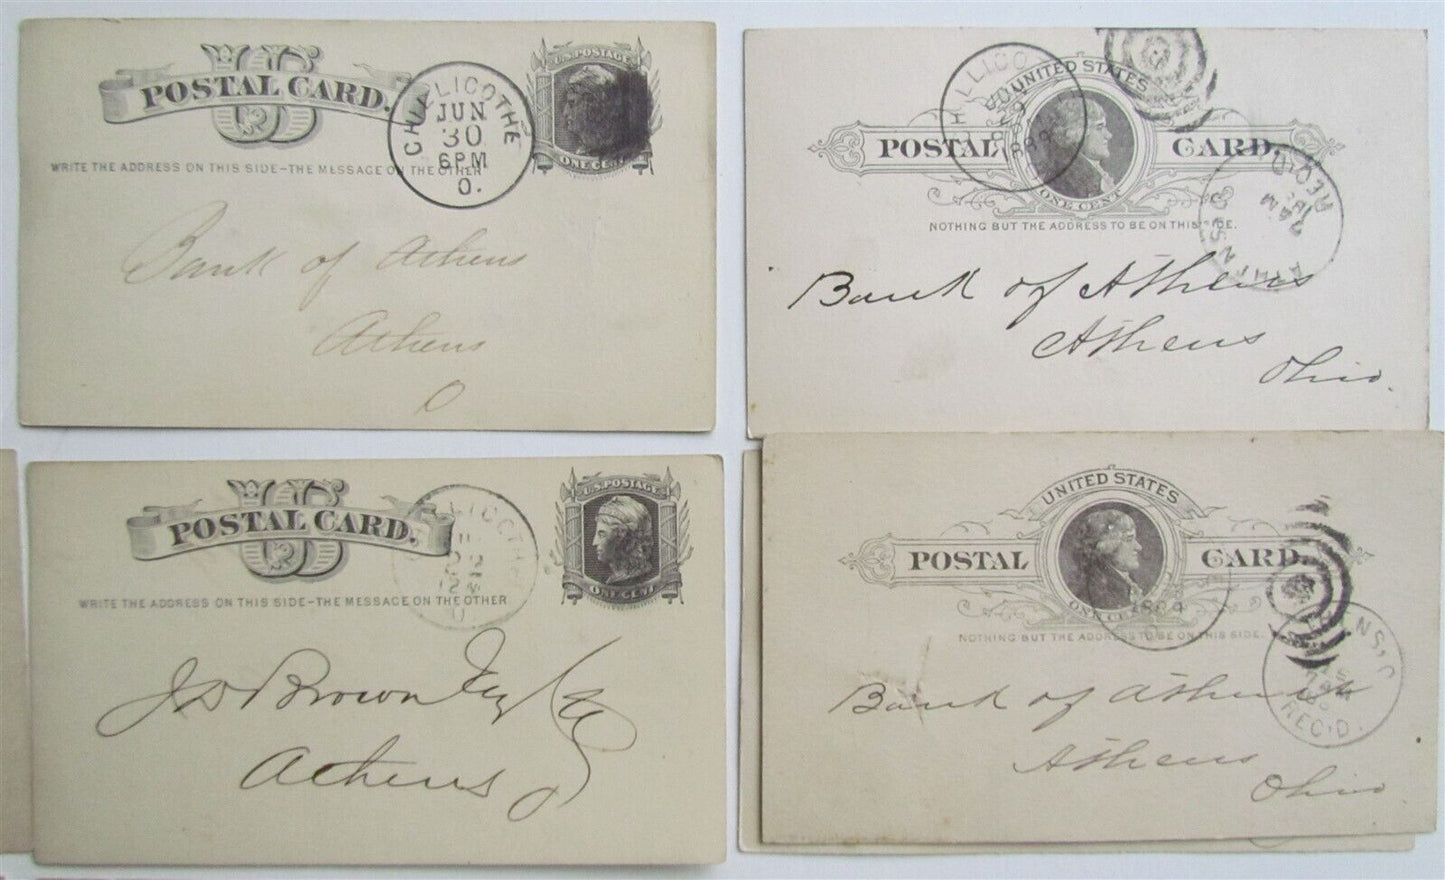 U S
POSTAL CARD.
U.S. POSTAGE
ONE CENT
CHILLICOTHE
JUN
30
6PM
O.
WRITE THE ADDRESS ON THIS SIDE-THE MESSAGE ON THE OTHER
Bank of Athens
Athens
O
UNITED STATES
POSTAL CARD.
ONE CENT
CHILLICO
1884
NOTHING BUT THE ADDRESS TO BE ON THIS SIDE.
REC'D
7 AM
Bank of Athens
Athens
Ohio.
U S
POSTAL CARD.
U.S. POSTAGE
ONE CENT
LLICOTH
WRITE THE ADDRESS ON THIS SIDE-THE MESSAGE ON THE OTHER
J D Brown
Athens
O
UNITED STATES
POSTAL CARD.
ONE CENT
1884
NOTHING BUT THE ADDRESS TO BE ON THIS SIDE.
REC'D.
Bank of Athens
Athens
Ohio